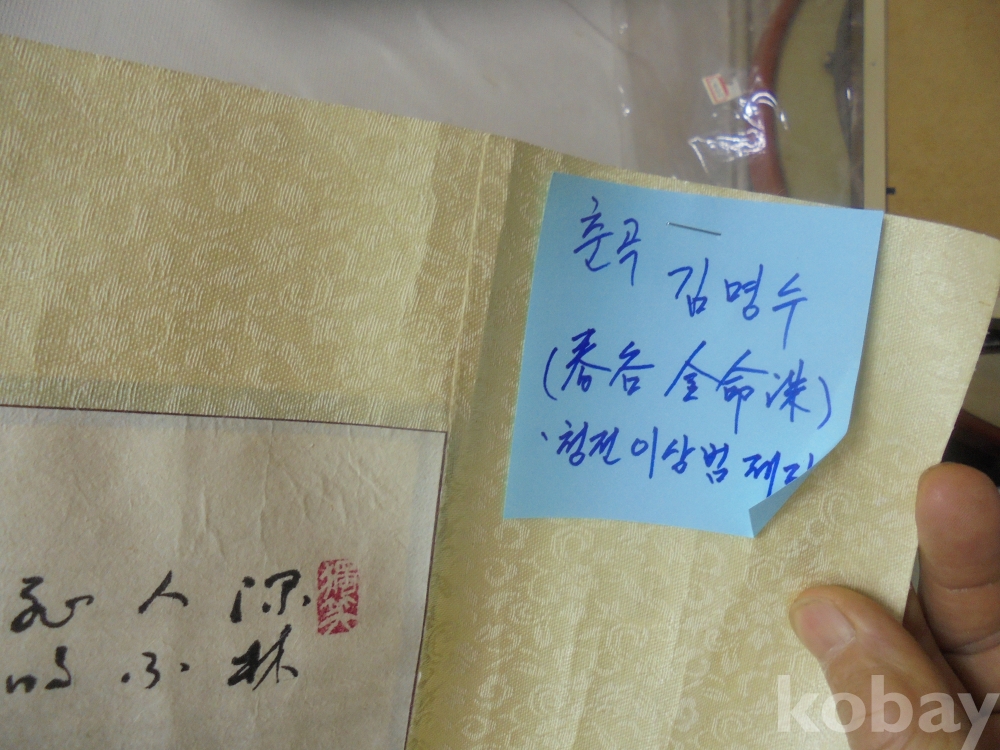 춘곡
김명수
(春谷 金命洙)
청전 이상범
深林
人不
知明
kobay